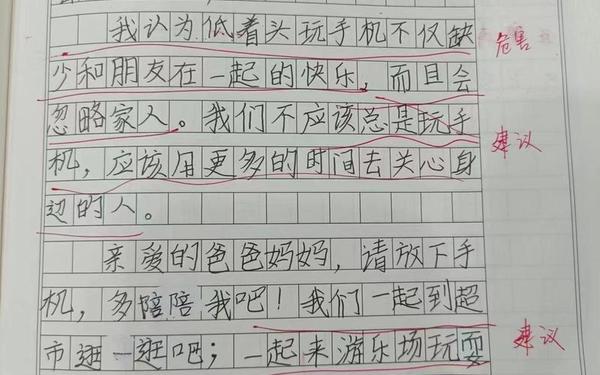 我认为低着头玩手机不仅缺
危害
少和朋友在一起的快乐，而且会
忽略家人。我们不应该总是玩手
建议
机，应该用更多的时间去关心身
边的人。
亲爱的爸爸妈妈，请放下手
机，多陪陪我吧！我们一起到超
市逛一逛吧；一起来游乐场玩耍
建议